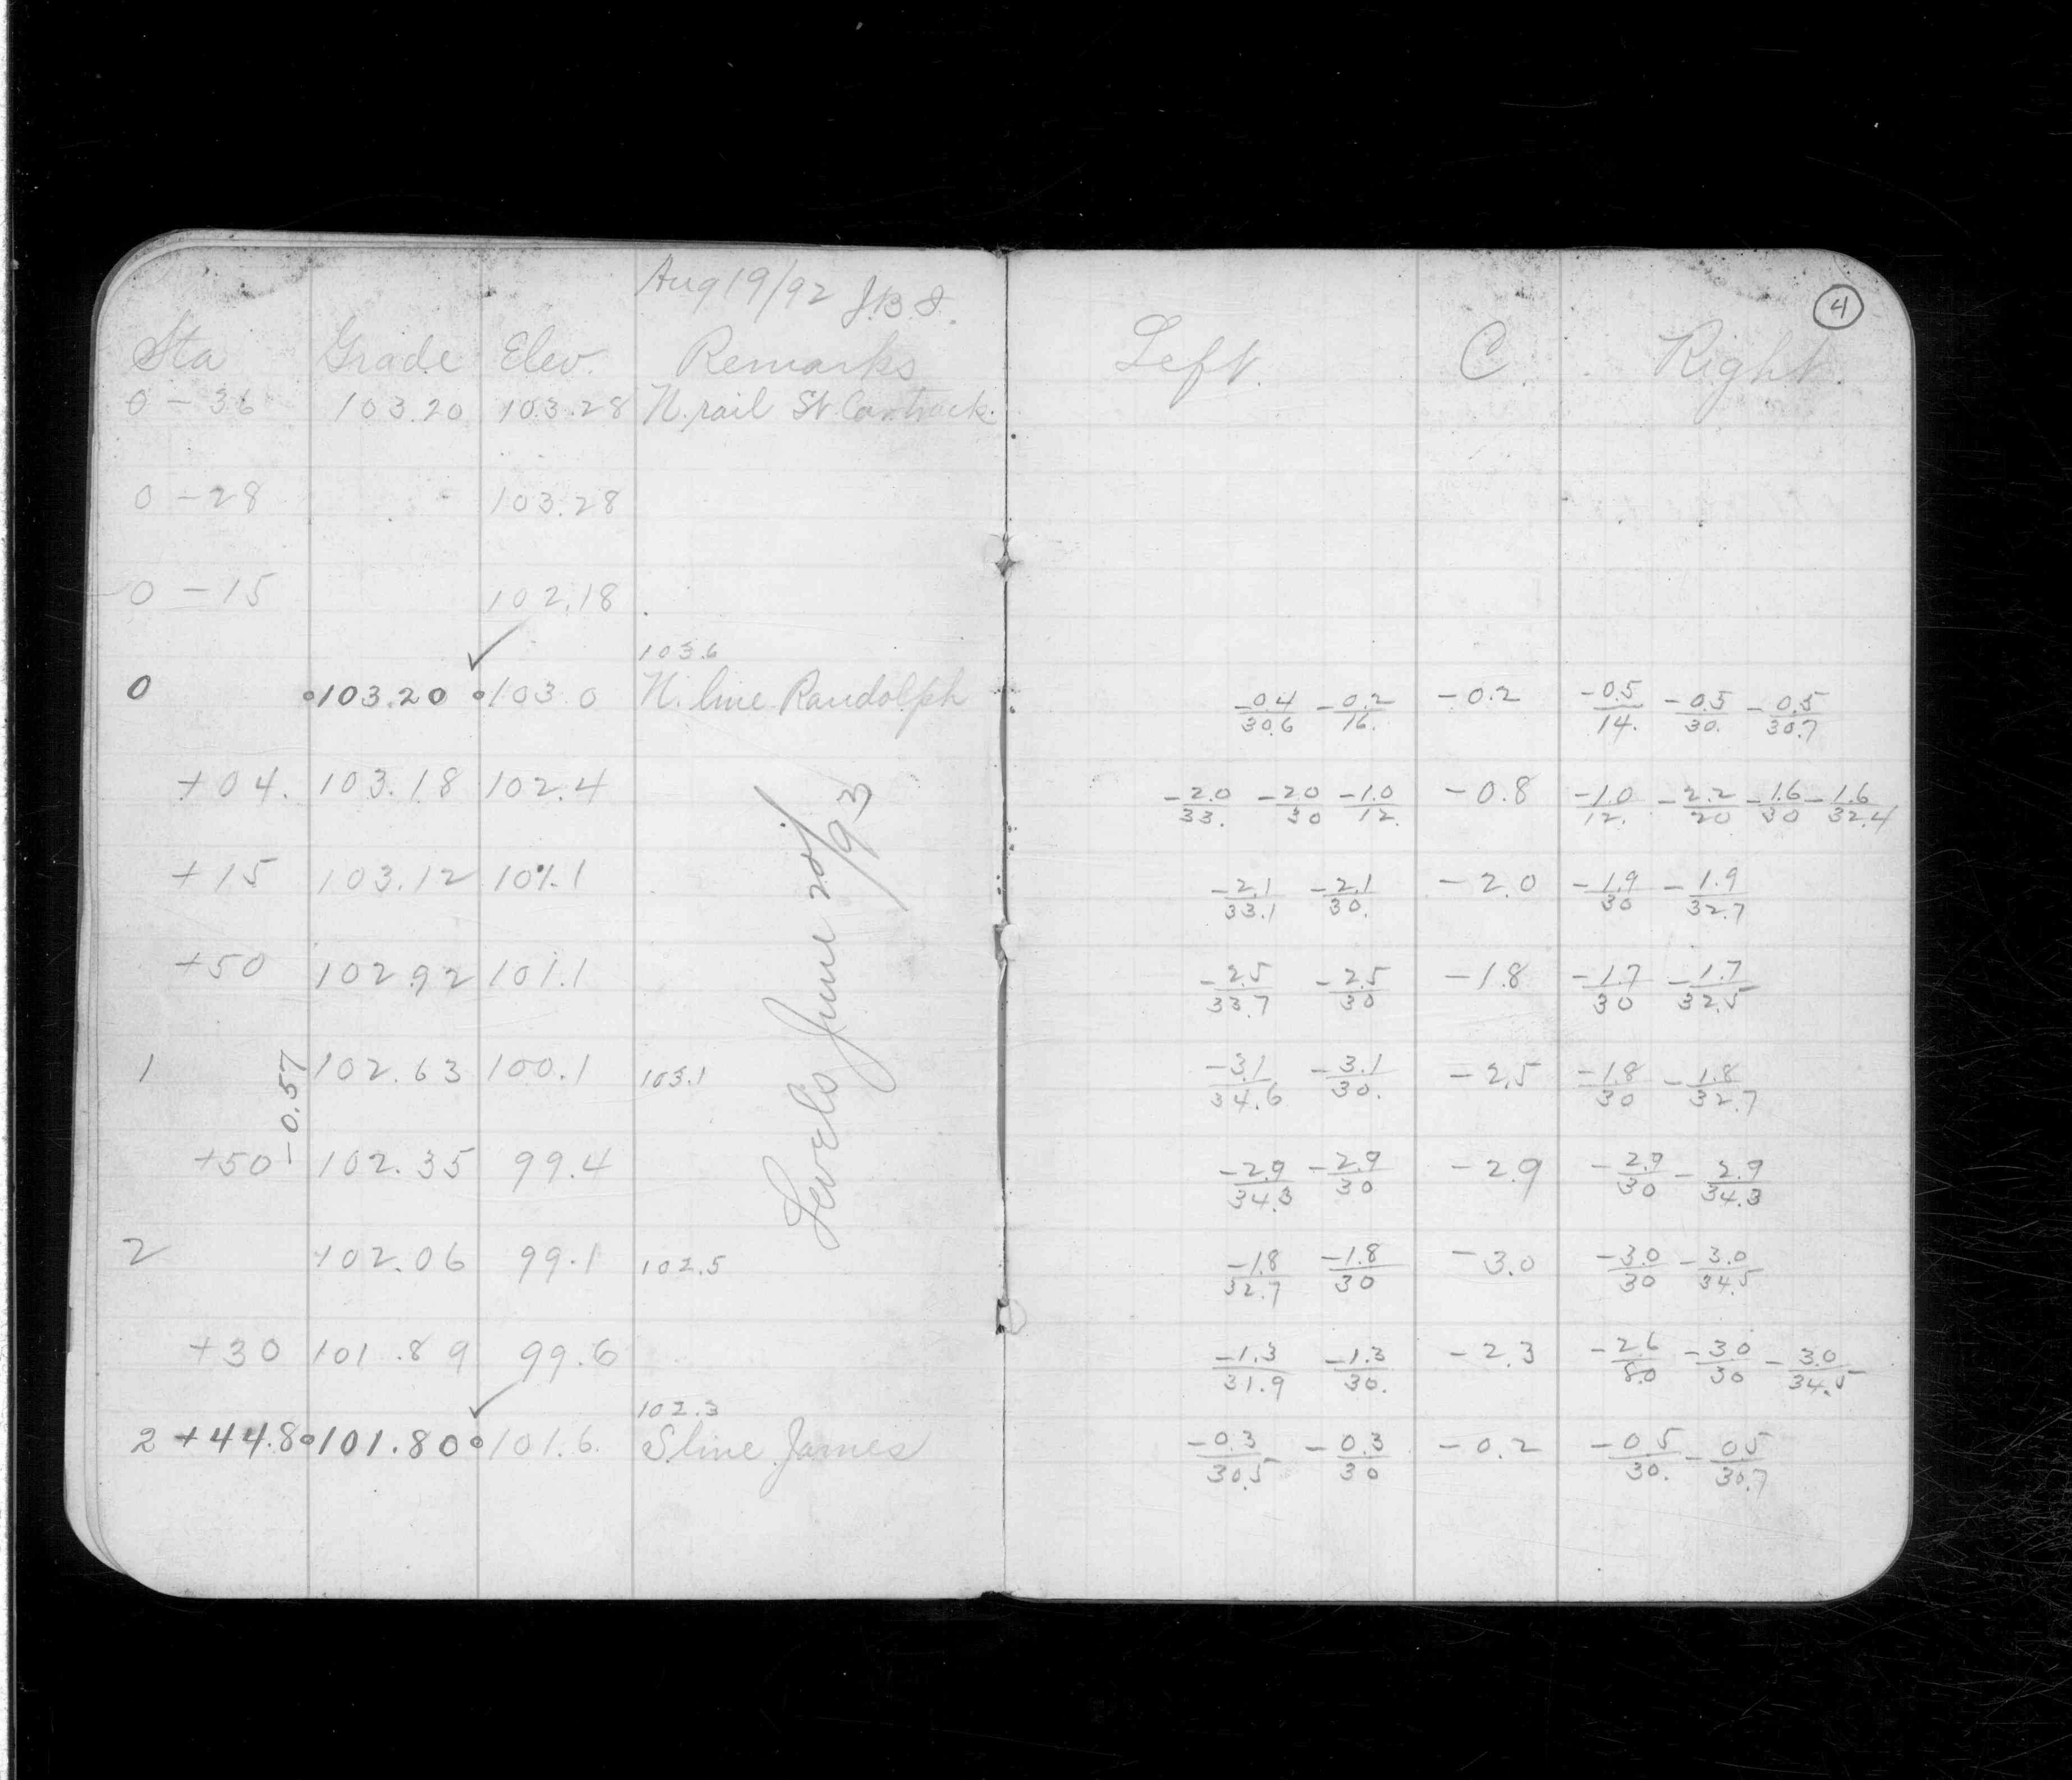 Aug 19/92 J.B.J.
4
Sta Grade Elev. Remarks Left. C. Right.
0 - 36 103.20 103.28 N. rail St Car track.
0 - 28 103.28
0 - 15 102.18
103.6
0 103.20 103 0 N. line Randolph -0.4/30.6 -0.2/16. -0.2 -0.5/14. -0.5/30. -0.5/30.7
+04. 103.18 102.4 -2.0/33. -20/30 -1.0/12. -0.8 -1.0/12. -2.2/20 -1.6/30 -1.6/32.4
+15 103.12 101.1 -2.1/33.1 -2.1/30. -2.0 -1.9/30 -1.9/32.7
+50 102.92 101.1 -2.5/33.7 -2.5/30 -1.8 -1.7/30 -1.7/32.5
1 102.63 100.1 103.1 -3.1/34.6 -3.1/30. -2.5 -1.8/30 -1.8/32.7
-0.57
+50 102.35 99.4 -2.9/34.3 -2.9/30 -2.9 -2.9/30 -2.9/34.3
2 102.06 99.1 102.5 -1.8/32.7 -1.8/30 -3.0 -3.0/30 -3.0/34.5
+30 101.89 99.6 -1.3/31.9 -1.3/30. -2.3 -2.6/8.0 -3.0/30 -3.0/34.5
102.3
2 +44.8 101.80 101.6. S line James -0.3/30.5 -0.3/30 -0.2 -0.5/30. -0.5/30.7
Levels June 20/93